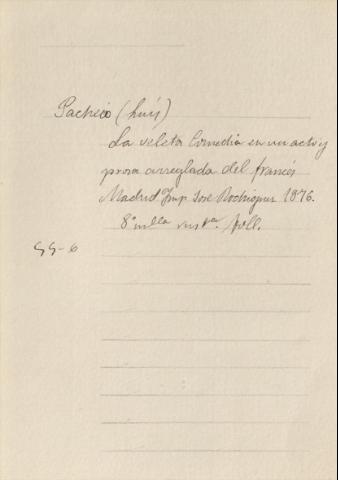 Pacheco (Luis)
La veleta Comedia en un acto y
prosa arreglada del francés
Madrid Imp José Rodriguez 1876.
8º mlla rust ca. foll.
55-6